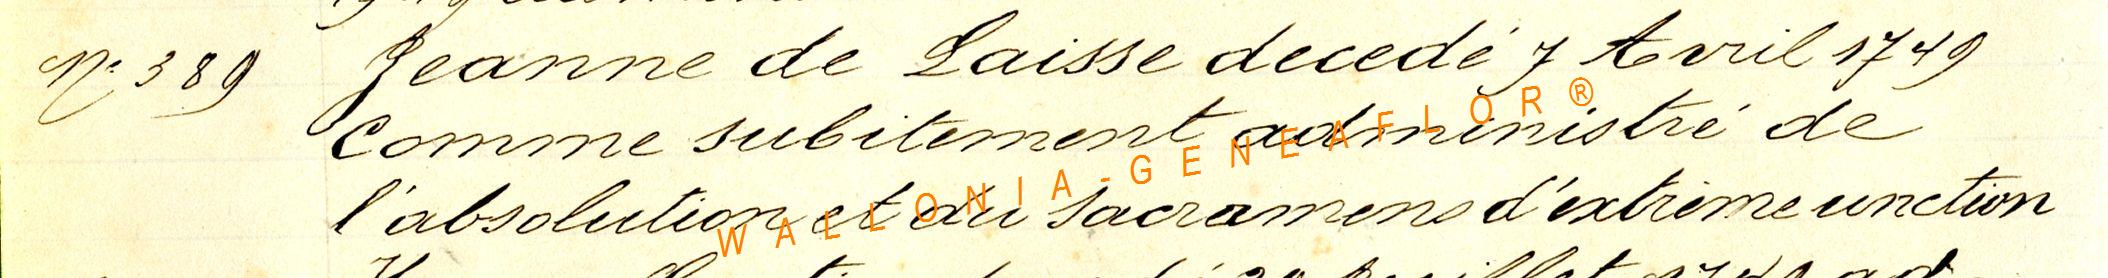 N° 389 Jeanne de Laisse decedé 7 Avril 1749
Comme subitement administré de
l'absolution et du Sacramens d'extrème unction
WALLONIA-GENEAFLOR®